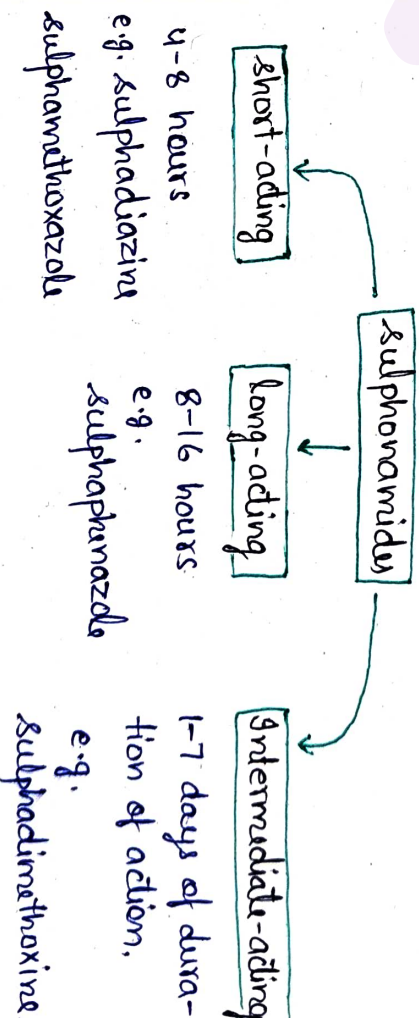 sulphonamides
short-acting
4-8 hours
e.g. sulphadiazine
sulphamethoxazole
long-acting
8-16 hours
e.g.
sulphaphenazole
Intermediate-acting
1-7 days of dura-
tion of action.
e.g.
sulphadimethoxine